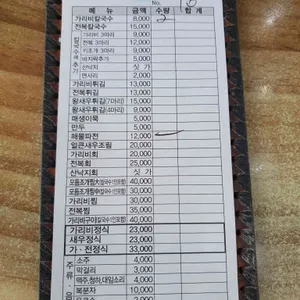 No.
메 뉴 금액 수량 합계
가리비칼국수 8,000 2
전복칼국수 15,000
가리비 3마리 9,000
전복 3마리 9,000
키조개 3마리 9,000
바지락추가 5,000
산낙지 싯가
면사리 2,000
가리비튀김 13,000
전복튀김 13,000
왕새우튀김(7마리) 15,000
왕새우튀김(4마리) 9,000
매생이묵 5,000
만두 5,000
해물파전 12,000
얼큰새우조림 20,000
가리비회 20,000
전복회 25,000
산낙지회 싯가
40,000
30,000
가리비찜 30,000
전복찜 35,000
가리비구이 40,000
가리비정식 23,000
새우정식 23,000
가·전정식 33,000
주류
소주 4,000
막걸리 3,000
맥주,청하,대잎소리 4,000
복분자 10,000